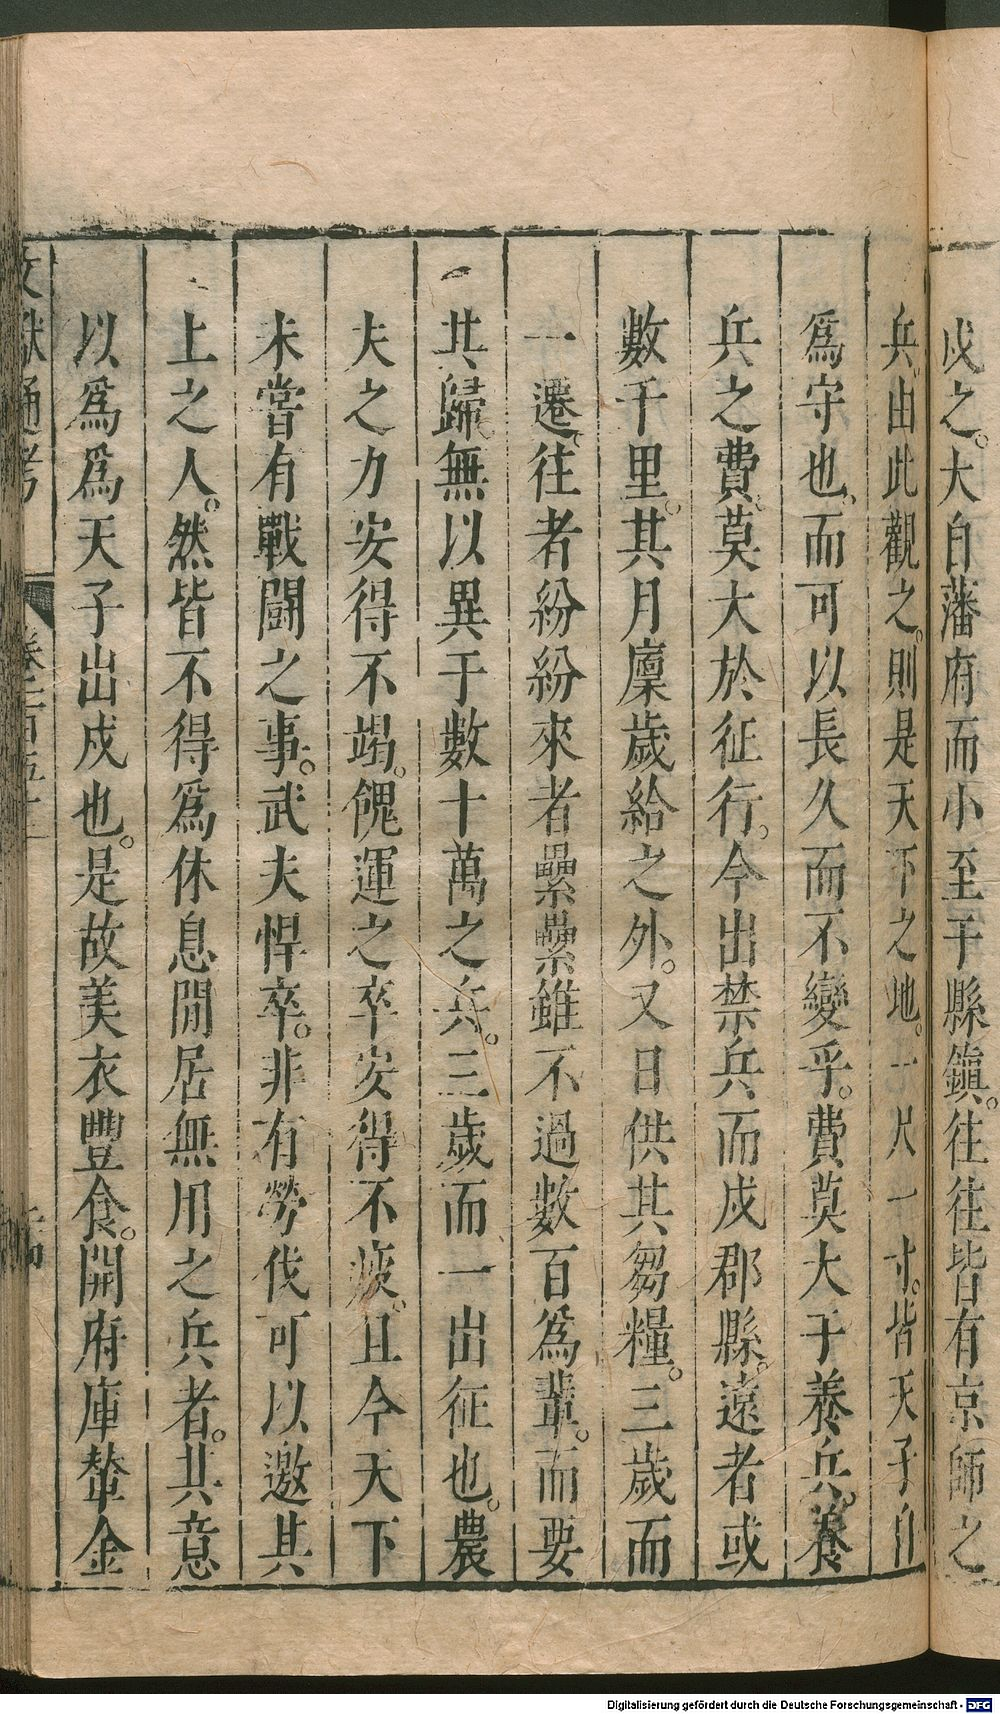 戍之。大自藩府而小至于縣鎮。往往皆有京師之
兵由此觀之。則是天下之地。一尺一寸。皆天子自
爲守也、而可以長久而不變乎。費莫大于養兵。養
兵之費莫大於征行。今出禁兵而戍郡縣。遠者或
數千里。其月廩歲給之外。又日供其芻糧。三歲而
一遷、往者紛紛來者纍纍雖不過數百爲輩。而要
其歸無以異于數十萬之兵。三歲而一出征也。農
夫之力安得不竭。餽運之卒安得不疲。且今天下
未嘗有戰鬭之事。武夫悍卒。非有勞伐可以邀其
上之人。然皆不得爲休息閒居無用之兵者。其意
以爲爲天子出戍也。是故美衣豐食。開府庫輦金
文獻通考
Digitalisierung gefördert durch die Deutsche Forschungsgemeinschaft - DFG